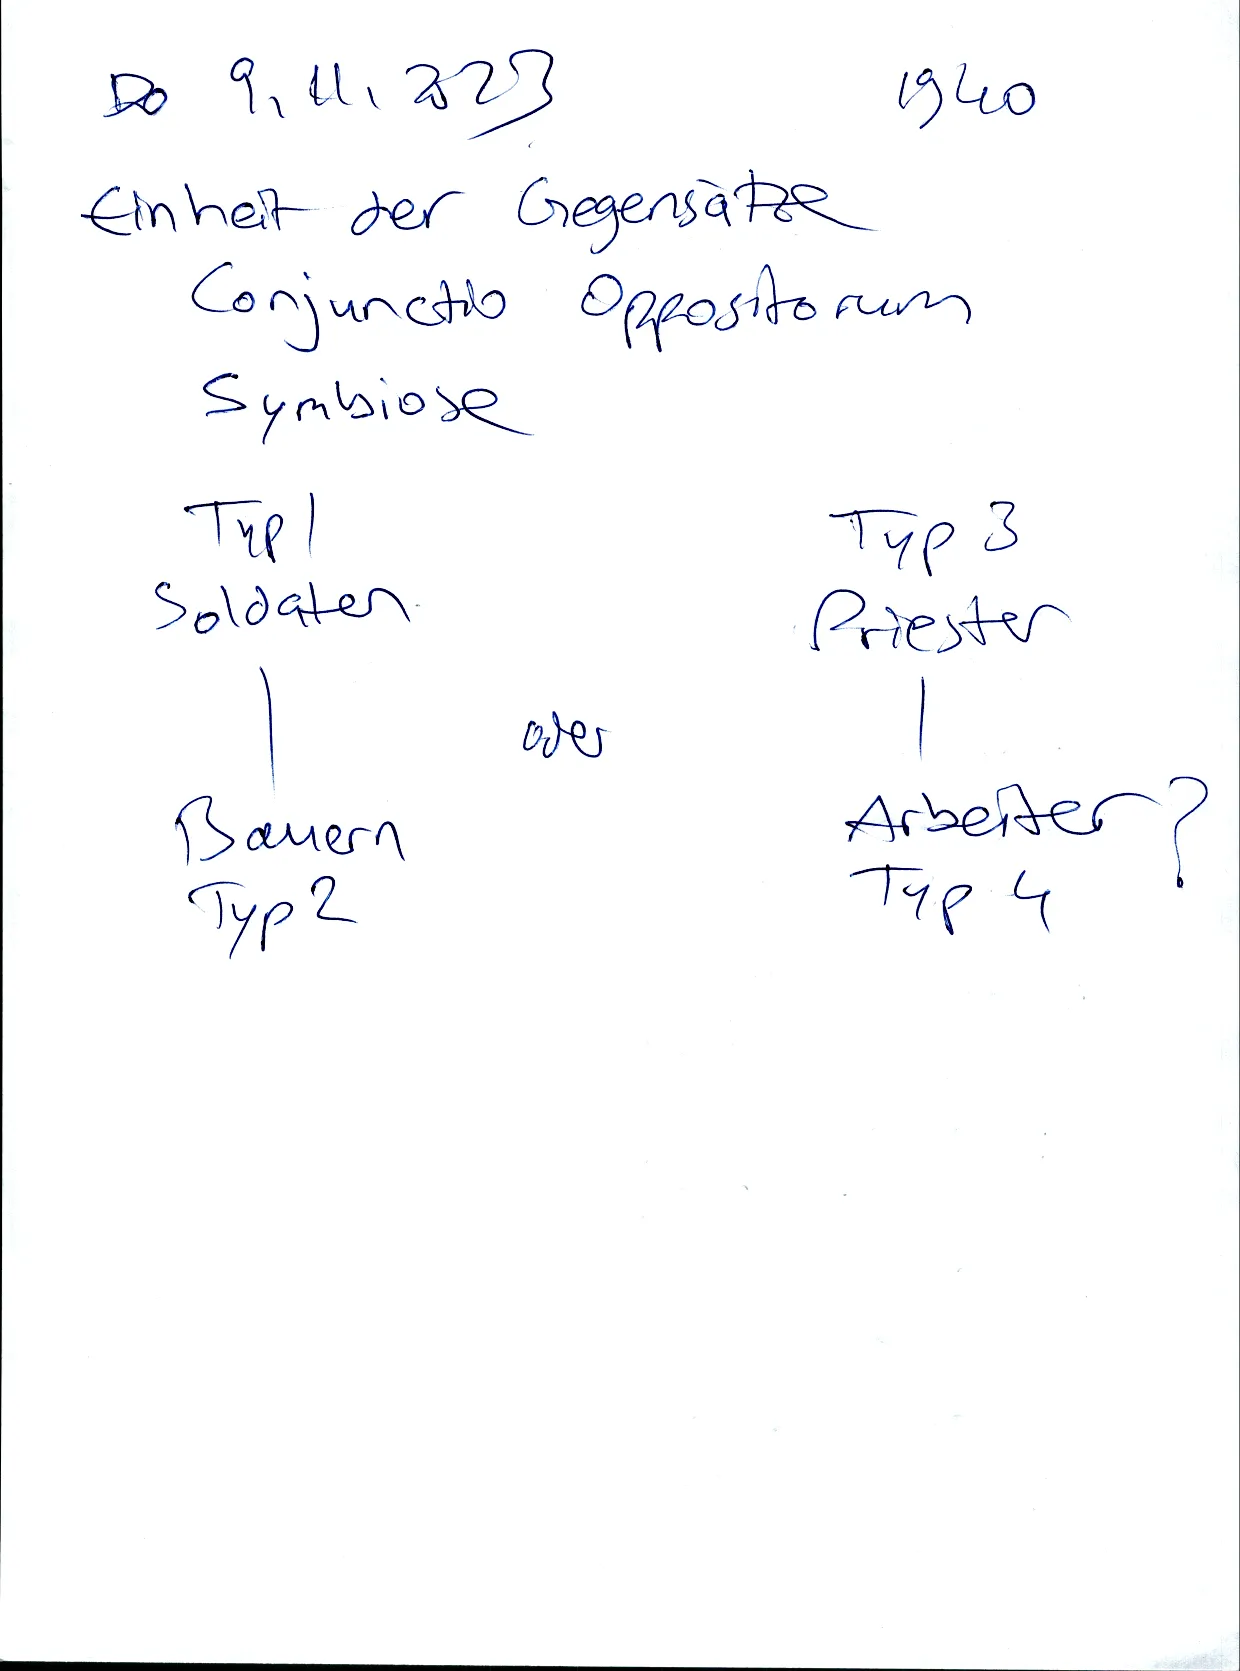 Do 9.11.2023 1940
Einheit der Gegensätze
Conjunctio Oppositorum
Symbiose
Typ 1 Typ 3
Soldaten Priester
oder
Bauern Arbeiter?
Typ 2 Typ 4